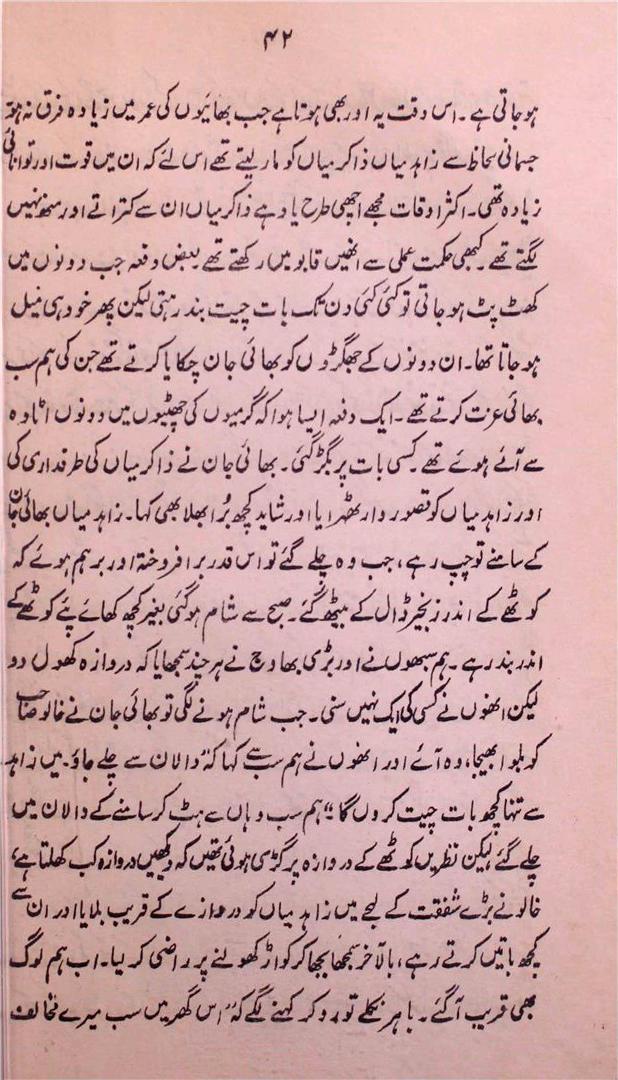 ۴۲
ہوجاتی ہے۔ اس وقت یہ اور بھی ہوتا ہے جب بھائیوں کی عمر میں زیادہ فرق نہ ہو
جسمانی لحاظ سے زاہد میاں ذاکر میاں کو مار لیتے تھے اس لئے کہ ان میں قوت اور توانائی
زیادہ تھی۔ اکثر اوقات مجھے اچھی طرح یاد ہے ذاکر میاں ان سے کتراتے اور منھ نہیں
لگتے تھے۔ کبھی حکمت عملی سے انھیں قابو میں رکھتے تھے۔ بعض دفعہ جب دونوں میں
کھٹ پٹ ہوجاتی تو کئی کئی دن تک بات چیت بند رہتی لیکن پھر خود ہی میل
ہوجاتا تھا۔ ان دونوں کے جھگڑوں کو بھائی جان چکایا کرتے تھے جن کی ہم سب
بھائی عزت کرتے تھے۔ ایک دفعہ ایسا ہوا کہ گرمیوں کی چھٹیوں میں دونوں اٹاوہ
سے آئے ہوئے تھے کسی بات پر بگڑ گئی۔ بھائی جان نے ذاکر میاں کی طرفداری کی
اور زاہد میاں کو قصور وار ٹھہرایا اور شاید کچھ بُرا بھلا بھی کہا۔ زاہد میاں بھائی جان
کے سامنے تو چپ رہے، جب وہ چلے گئے تو اس قدر برافروختہ اور برہم ہوئے کہ
کوٹھے کے اندر زنجیر ڈال کے بیٹھ گئے۔ صبح سے شام ہوگئی بغیر کچھ کھائے پئے کوٹھے کے
اندر بند رہے۔ ہم سبھوں نے اور بڑی بھاوج نے ہر چند سمجھایا کہ دروازہ کھول دو
لیکن انھوں نے کسی کی ایک نہیں سنی۔ جب شام ہونے لگی تو بھائی جان نے خالو صاحب
کو بلوا بھیجا، وہ آئے اور انھوں نے ہم سب سے کہا کہ ”دالان سے چلے جاؤ۔ میں زاہد
سے تنہا کچھ بات چیت کروں گا“ ہم سب وہاں سے ہٹ کر سامنے کے دالان میں
چلے گئے لیکن نظریں کوٹھے کے دروازہ پر گڑی ہوئی تھیں کہ دیکھیں دروازہ کب کھلتا ہے،
خالو نے بڑے شفقت کے لہجے میں زاہد میاں کو دروازے کے قریب بلایا اور ان سے
کچھ باتیں کرتے رہے، بالآخر سمجھا بجھا کر کواڑ کھولنے پر راضی کرلیا۔ اب ہم لوگ
بھی قریب آگئے۔ باہر نکلے تو رو کر کہنے لگے کہ ”اس گھر میں سب میرے مخالف